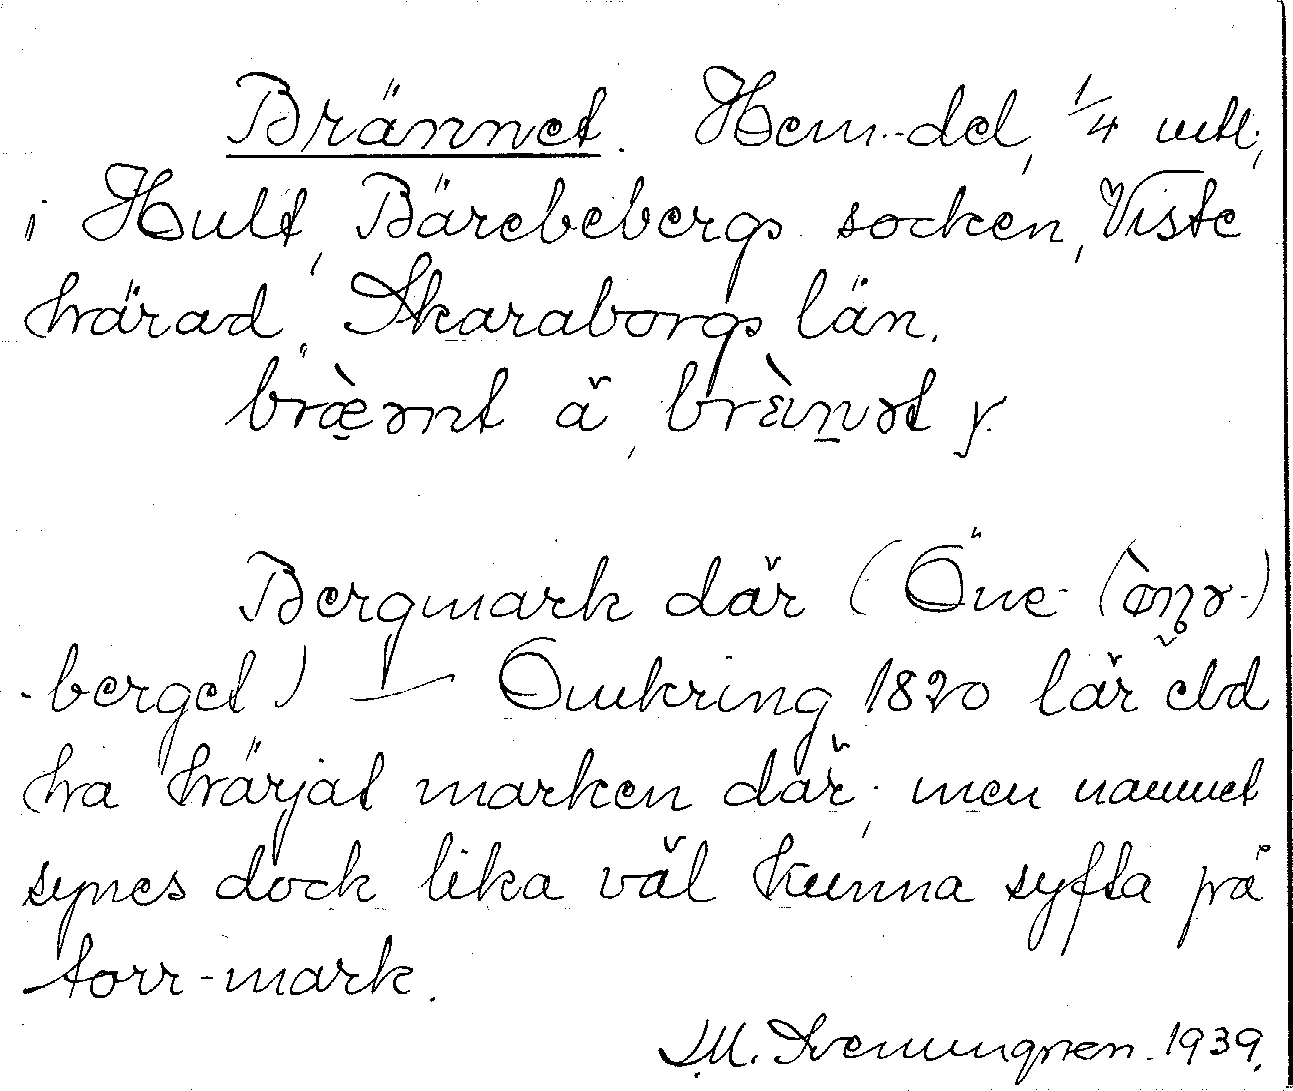 Brännet. Hem.-del, 1/4 mtl.,
i Hult, Bärebebergs socken, Viste
härad, Skaraborgs län.
bræ̀ənt ä, brɛ̀nət y.
Bergmark där (Öne- (ø̀nə-)
-berget) — Omkring 1820 lär eld
ha härjat marken där; men namnet
synes dock lika väl kunna syfta på
torr-mark.
J.M. Svenungren. 1939.